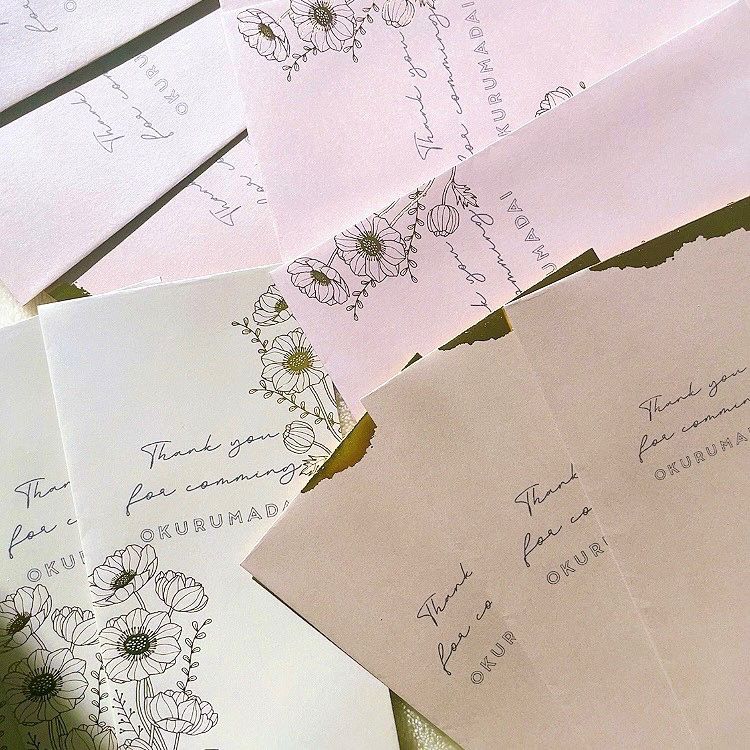 Thank
for com
OKURU
Thank you
for comming
KURUMADAI
Thank
for co
k you
omming
UMADAI
Thank you
for comming
OKURUMADA
Than
for c
OKU
Thank you
for comming
OKURUMA
Thank
for co
OKUR
Thank
for co
OKUR